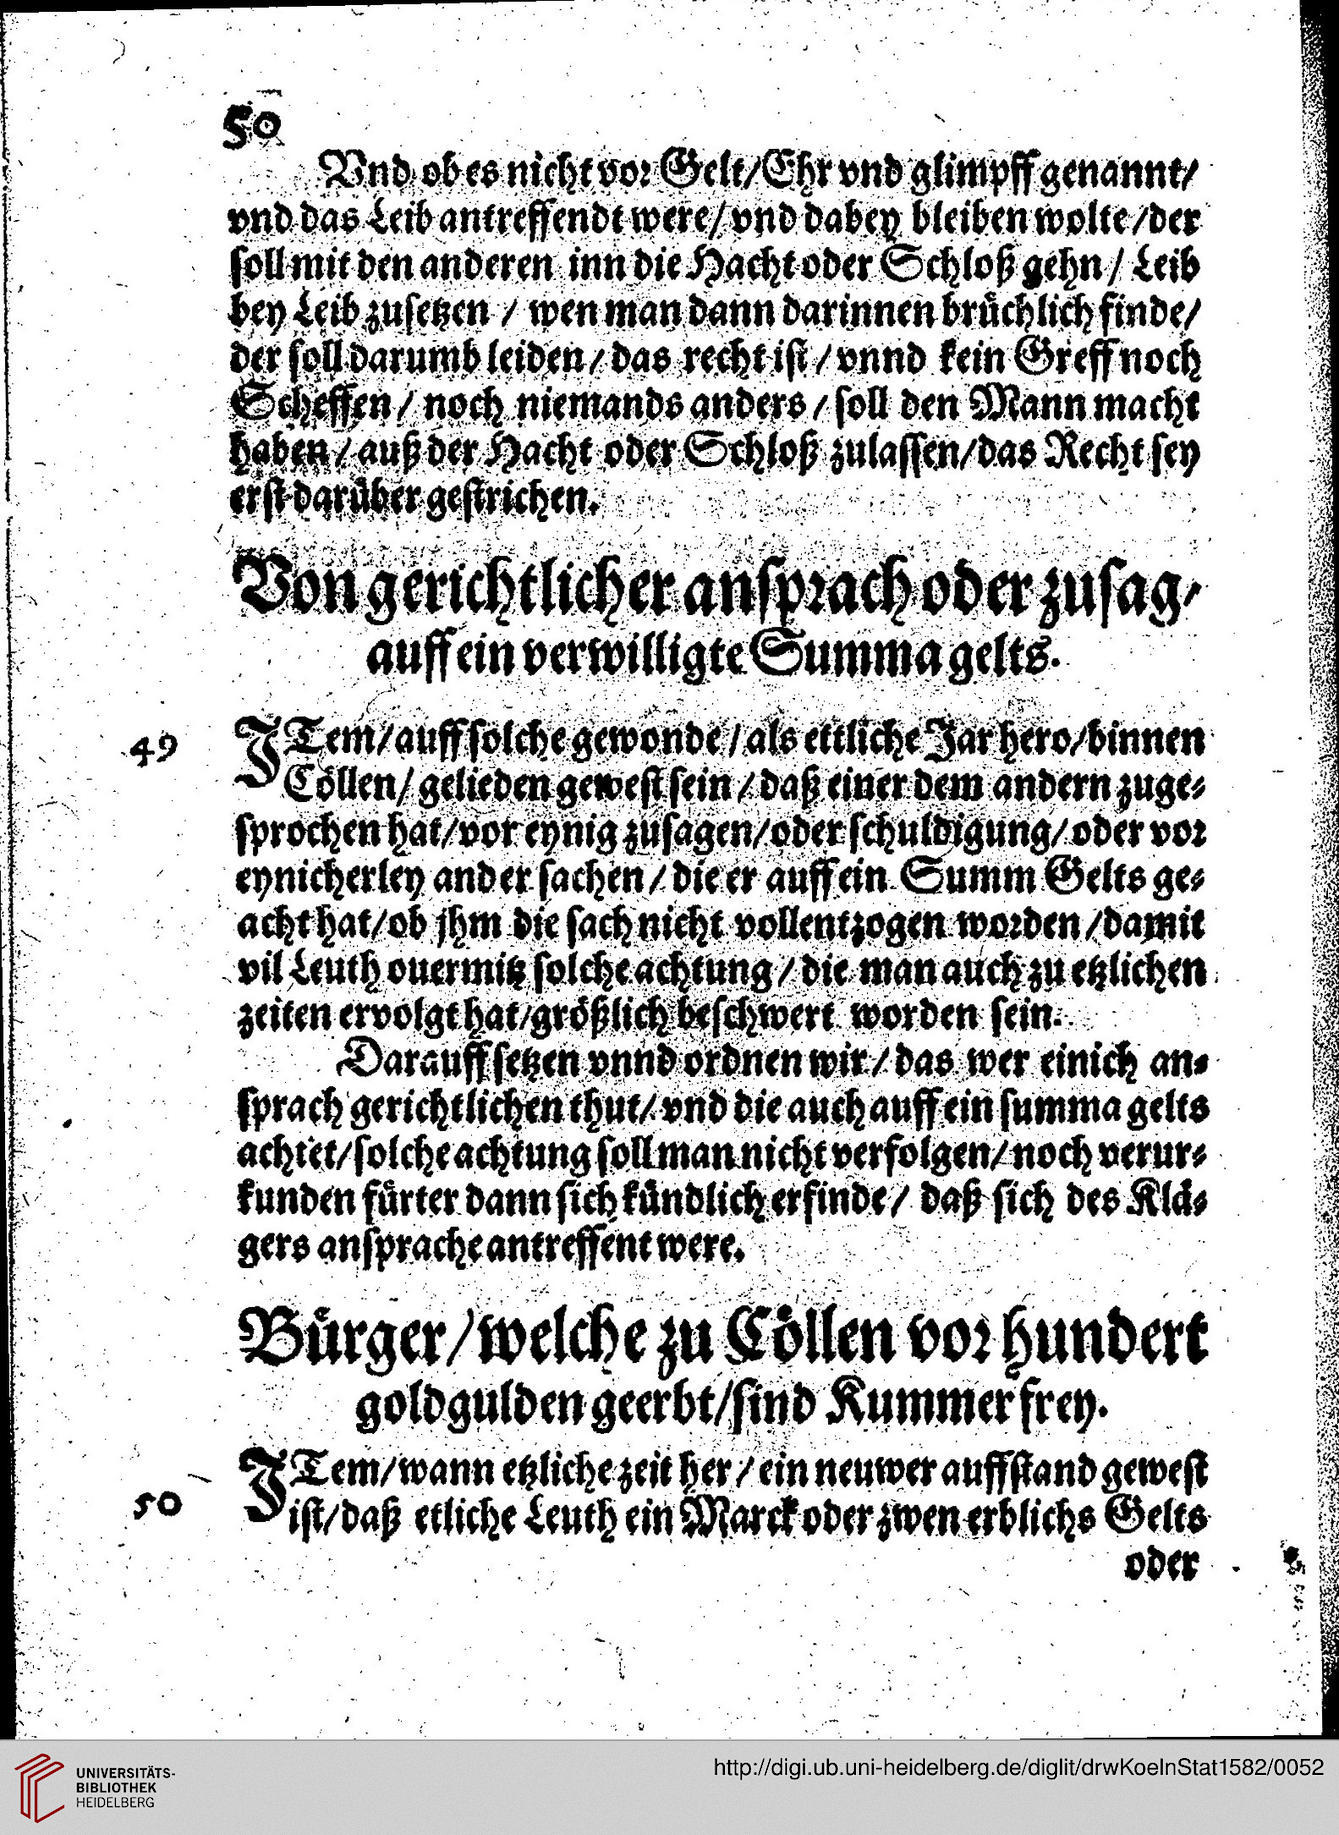 50
Vnd ob es nicht vor Gelt/Ehr vnd glimpff genannt/
vnd das Leib antreffendt were/ vnd dabey bleiben wolte/der
soll mit den anderen inn die Hacht oder Schloß gehn/ Leib
bey Leib zusetzen / wen man dann darinnen brüchlich finde/
der soll darumb leiden/ das recht ist / vnnd kein Greff noch
Scheffen/ noch niemands anders/ soll den Mann macht
haben/ auß der Hacht oder Schloß zulassen/das Recht sey
erst darüber gestrichen.
Von gerichtlicher ansprach oder zusag/
auff ein verwilligte Summa gelts.
49
JTem/auff solche gewonde/als ettliche Jar hero/binnen
Cöllen/ gelieden gewest sein/ daß einer dem andern zuge-
sprochen hat/vor eynig zusagen/oder schuldigung/oder vor
eynicherley ander sachen/ die er auff ein Summ Gelts ge-
acht hat/ob jhm die sach nicht vollentzogen worden/damit
vil Leuth ouermitz solche achtung/ die man auch zu etzlichen
zeiten ervolgt hat/größlich beschwert worden sein.
Darauff setzen vnnd ordnen wir/ das wer einich an-
sprach gerichtlichen thut/ vnd die auch auff ein summa gelts
achtet/solche achtung soll man nicht verfolgen/noch verur-
kunden fürter dann sich kündlich erfinde/ daß sich des Klä-
gers ansprache antreffent were.
Bürger/welche zu Cöllen vor hundert
goldgulden geerbt/sind Kummer frey.
50
JTem/wann etzliche zeit her/ ein neuwer auffstand gewest
ist/daß etliche Leuth ein Marck oder zwen erblichs Gelts
oder
UNIVERSITÄTS-
BIBLIOTHEK
HEIDELBERG
http://digi.ub.uni-heidelberg.de/diglit/drwKoelnStat1582/0052